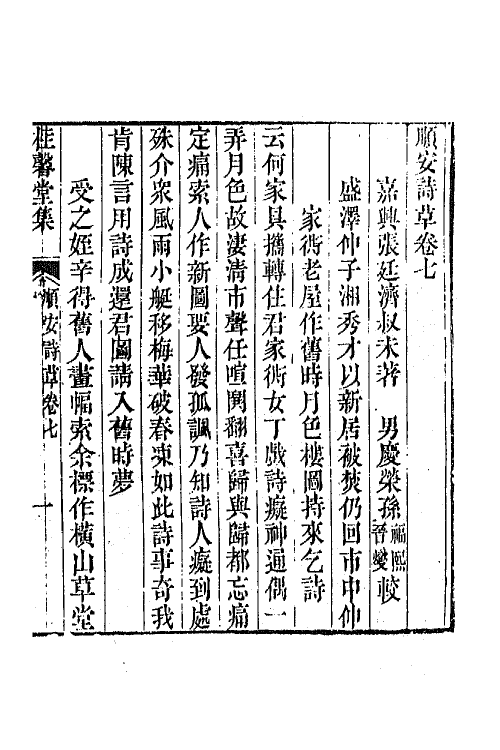 順安詩草卷七
嘉興張廷濟叔未著　男慶榮孫福熙晉燮較
盛澤仲子湘秀才以新居被焚仍回市中仲
家衖老屋作舊時月色樓圖持來乞詩
云何家具攜轉住君家衖女丁戲詩癡神通偶一
弄月色故淒淸市聲任喧鬨翻喜歸與歸都忘痛
定痛索人作新圖要人發孤諷乃知詩人癡到處
殊介衆風雨小艇移梅華破春凍如此詩事奇我
肯陳言用詩成還君圖請入舊時夢
受之姪辛得舊人畫幅索余標作橫山草堂
桂馨堂集
順安詩草卷七
一